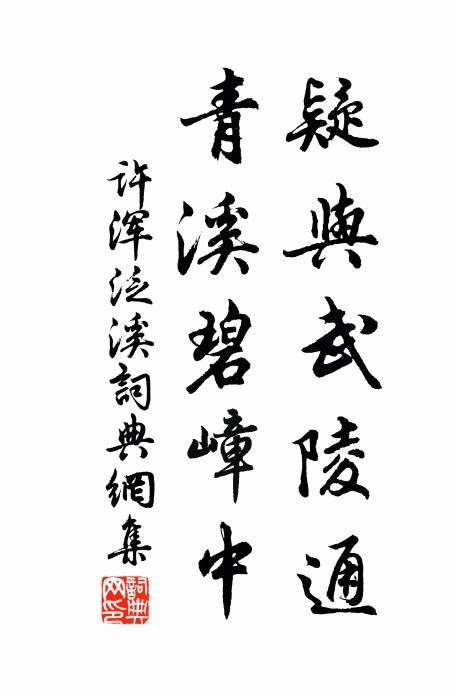 疑與武陵通
青溪碧嶂中
许浑泛溪詞典網集
詞典网印